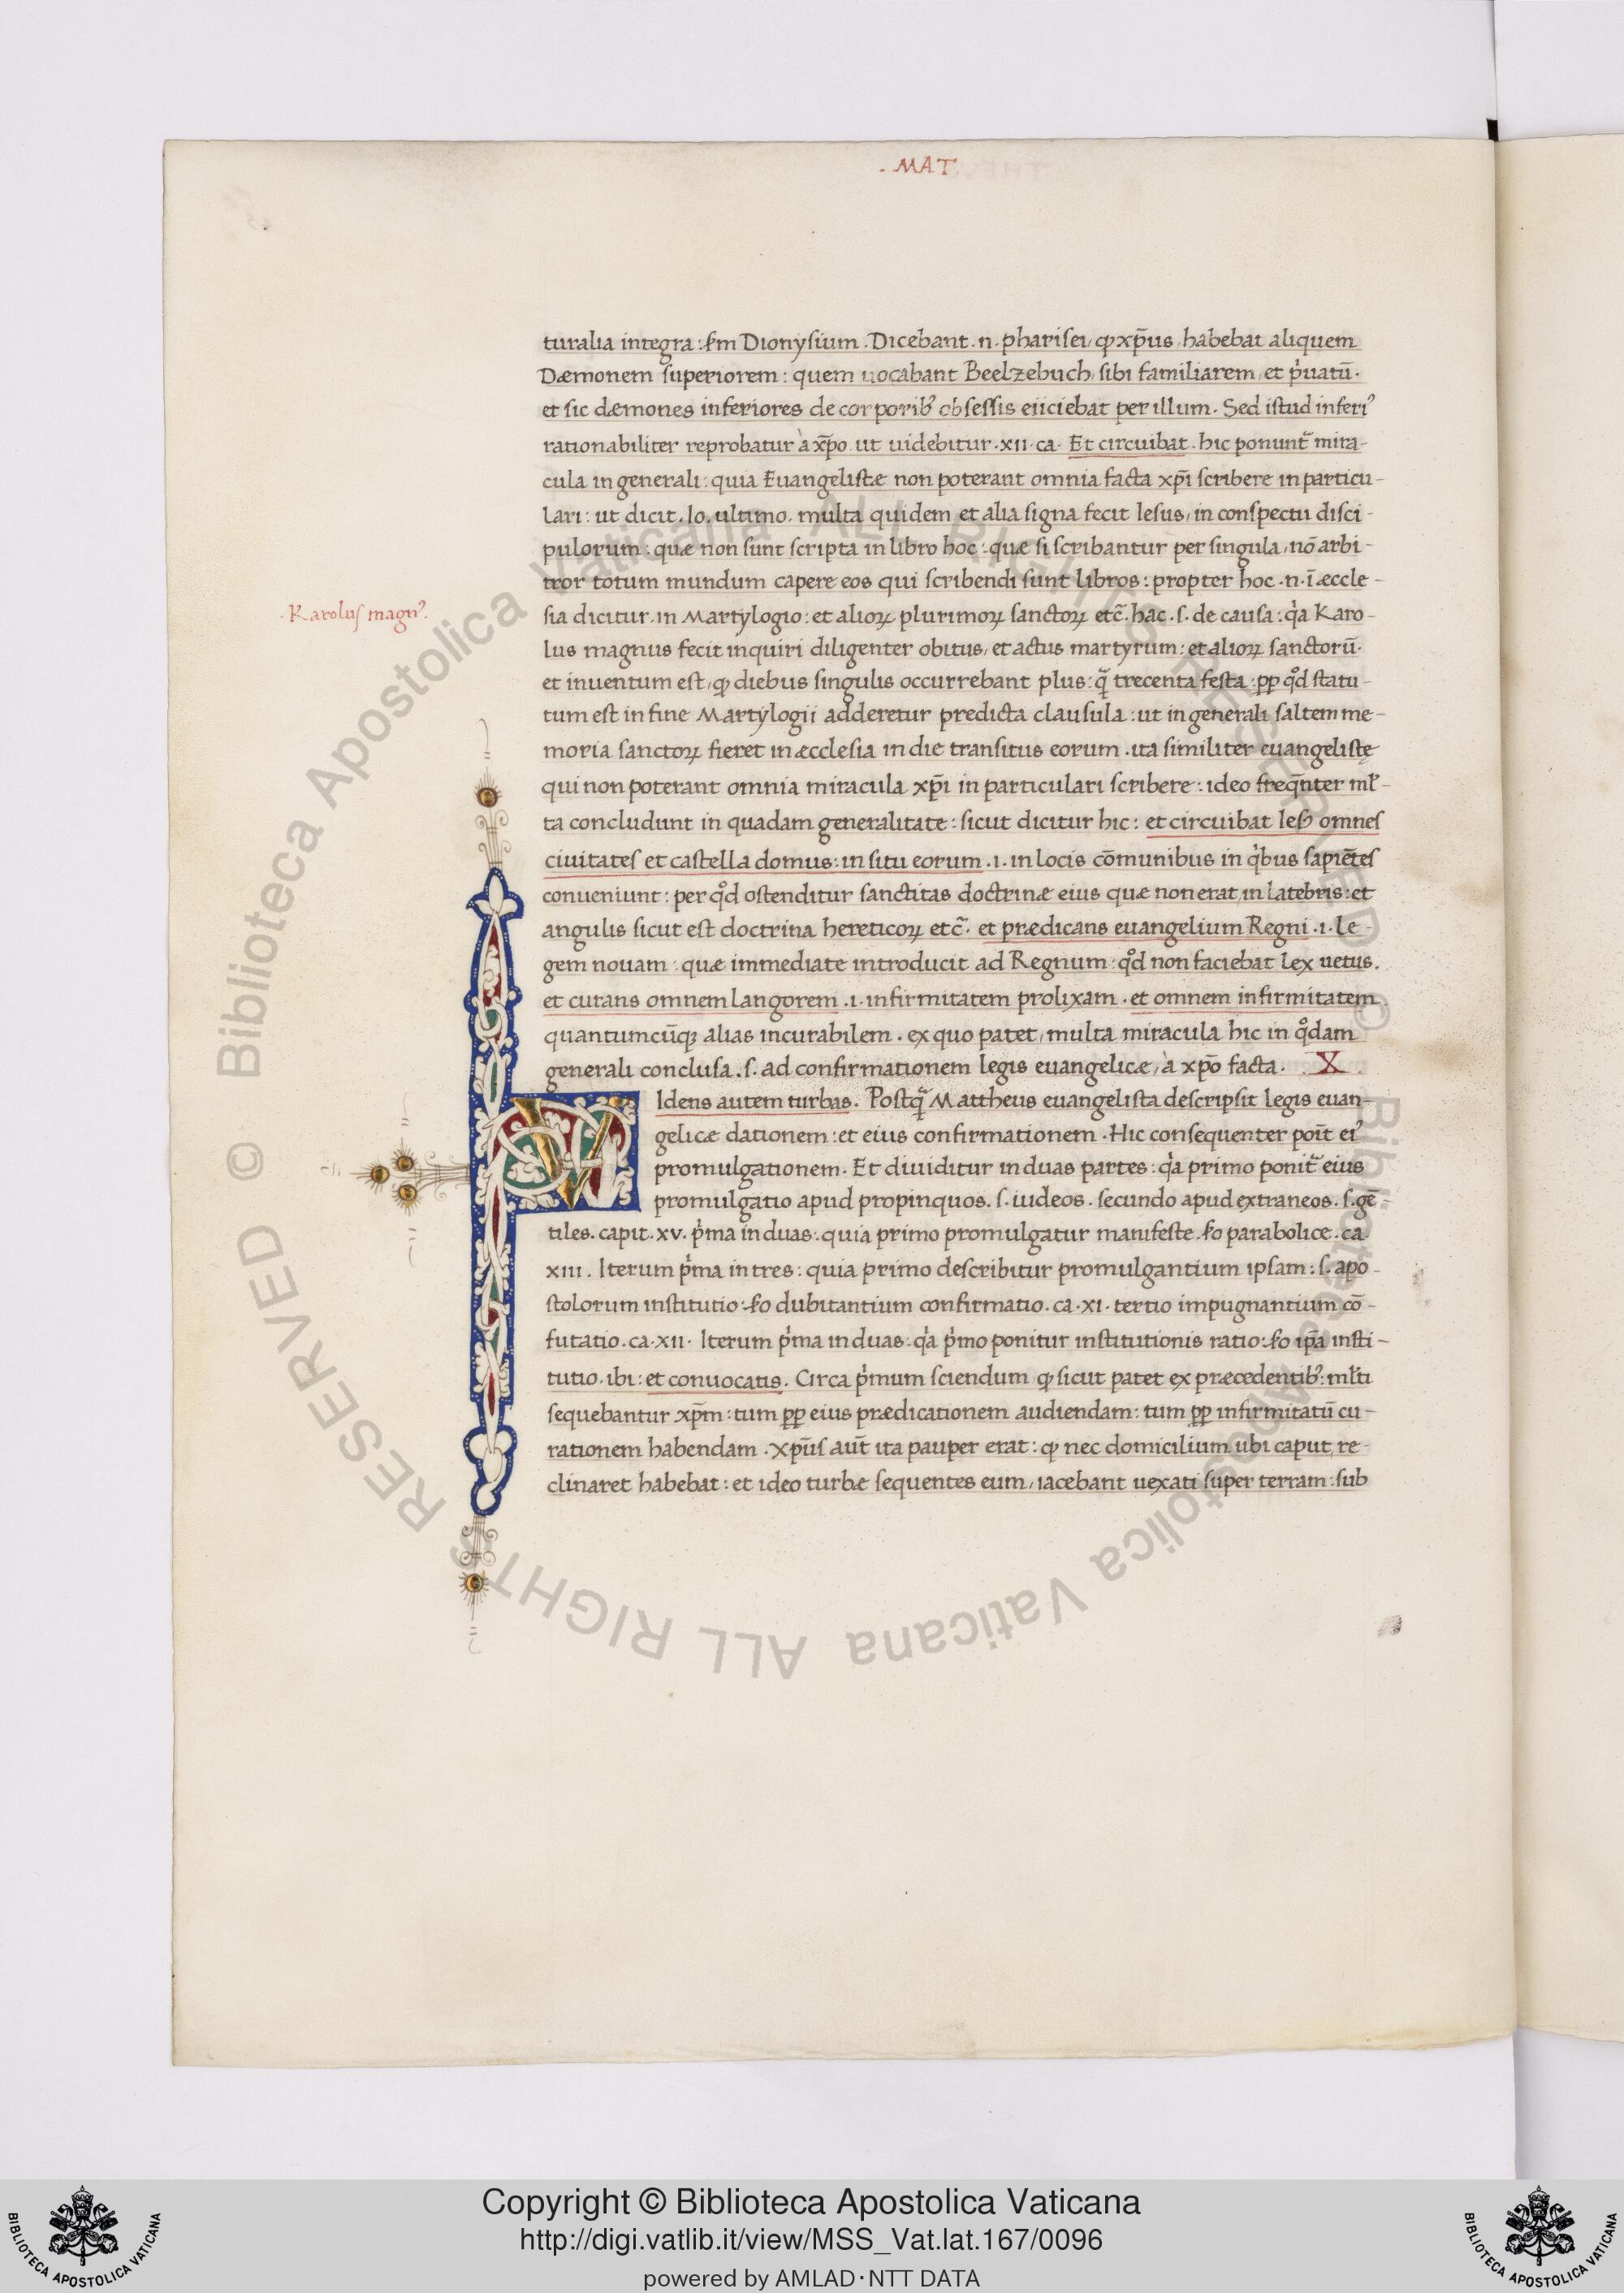 . MAT
turalia integra: ẜm Dionysium. Dicebant .n. pharisei, ꝙ xp̄us, habebat aliquem
Dæmonem superiorem: quem uocabant Beelzebuch, sibi familiarem, et pͥuatū.
et sic dæmones inferiores de corporibꝰ obsessis eiiciebat per illum. Sed istud inferiꝰ
rationabiliter reprobatur à xp̄o. ut uidebitur .xii. ca. Et circuibat. hic ponunt᷑ mira-
cula in generali: quia Euangelistæ non poterant omnia facta xp̄i scribere in particu-
lari: ut dicit. Io. ultimo. multa quidem et alia signa fecit Iesus, in conspectu disci-
pulorum: quæ non sunt scripta in libro hoc: quæ si scribantur per singula, nō arbi-
tror totum mundum capere eos qui scribendi sunt libros: propter hoc .n. ī æccle-
. Karolus magnꝰ.
sia dicitur in Martylogio: et alioꝝ plurimoꝝ sanctoꝝ etc̄. hac .s. de causa: qͥa Karo-
lus magnus fecit inquiri diligenter obitus, et actus martyrum: et alioꝝ sanctorū.
et inuentum est, ꝙ diebus singulis occurrebant plus: qᷓ trecenta festa: ꝓp qͦd statu-
tum est in fine Martylogii adderetur predicta clausula: ut in generali saltem me-
moria sanctoꝝ fieret in æcclesia in die transitus eorum. ita similiter euangelistę
qui non poterant omnia miracula xp̄i in particulari scribere: ideo freq̄nter ml̄-
ta concludunt in quadam generalitate: sicut dicitur hic: et circuibat Iesꝰ omnes
ciuitates et castella domus: in situ eorum .i. in locis cōmunibus in qͥbus sapiētes
conueniunt: per qͦd ostenditur sanctitas doctrinæ eius quæ non erat in latebris: et
angulis sicut est doctrina hereticoꝝ etc̄. et prædicans euangelium Regni .i. le-
gem nouam: quæ immediate introducit ad Regnum: qͦd non faciebat lex uetus.
et curans omnem langorem .i. infirmitatem prolixam. et omnem infirmitatem
quantumcūqꝫ alias incurabilem. ex quo patet, multa miracula hic in qͦdam
generali conclusa .s. ad confirmationem legis euangelicæ, à xp̄o facta. X
VIdens autem turbas. Postqᷓ Mattheus euangelista descripsit legis euan-
gelicæ dationem: et eius confirmationem. Hic consequenter poīt eiꝰ
promulgationem. Et diuiditur in duas partes: qͥa primo ponit᷑ eius
promulgatio apud propinquos .s. iudeos. secundo apud extraneos .s. gē-
tiles. capit. xv. pͥma in duas: quia primo promulgatur manifeste. ẜo parabolice. ca.
xiii. Iterum pͥma in tres: quia primo describitur promulgantium ipsam: .s. apo-
stolorum institutio: ẜo dubitantium confirmatio. ca. xi. tertio impugnantium cō-
futatio. ca. xii. Iterum pͥma in duas: qͥa pͥmo ponitur institutionis ratio: ẜo ip̄a insti-
tutio. ibi: et conuocatis. Circa pͥmum sciendum ꝙ sicut patet ex præcedentibꝰ: ml̄ti
sequebantur xp̄m: tum ꝓp eius prædicationem audiendam: tum ꝓp infirmitatū cu-
rationem habendam. Xp̄us aūt ita pauper erat: ꝙ nec domicilium ubi caput re-
clinaret habebat: et ideo turbæ sequentes eum, iacebant uexati super terram: sub
© Biblioteca Apostolica Vaticana ALL RIGHTS RESERVED © Biblioteca Apostolica Vaticana ALL RIGHTS RESERVED
Copyright © Biblioteca Apostolica Vaticana
http://digi.vatlib.it/view/MSS_Vat.lat.167/0096
powered by AMLAD·NTT DATA
BIBLIOTECA APOSTOLICA VATICANA
BIBLIOTECA APOSTOLICA VATICANA